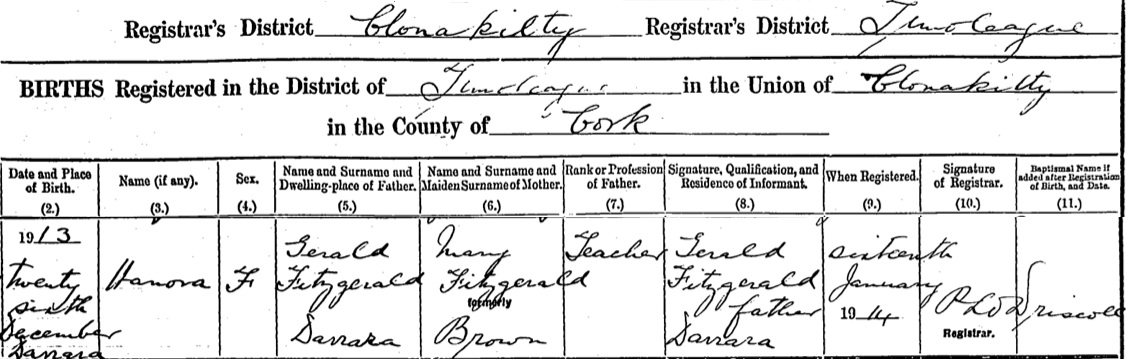 Registrar's District Clonakilty Registrar's District Timoleague
BIRTHS Registered in the District of Timoleague in the Union of Clonakilty
in the County of Cork
Date and Place of Birth. (2.)
Name (if any). (3.)
Sex. (4.)
Name and Surname and Dwelling-place of Father. (5.)
Name and Surname and Maiden Surname of Mother. (6.)
Rank or Profession of Father. (7.)
Signature, Qualification, and Residence of Informant. (8.)
When Registered. (9.)
Signature of Registrar. (10.)
Baptismal Name if added after Registration of Birth, and Date. (11.)
1913
twenty
sixth
December
Darrara
Hanora
F
Gerald
Fitzgerald
Darrara
Mary
Fitzgerald
formerly
Brown
Teacher
Gerald
Fitzgerald
father
Darrara
sixteenth
January
1914
O'Driscoll
Registrar.